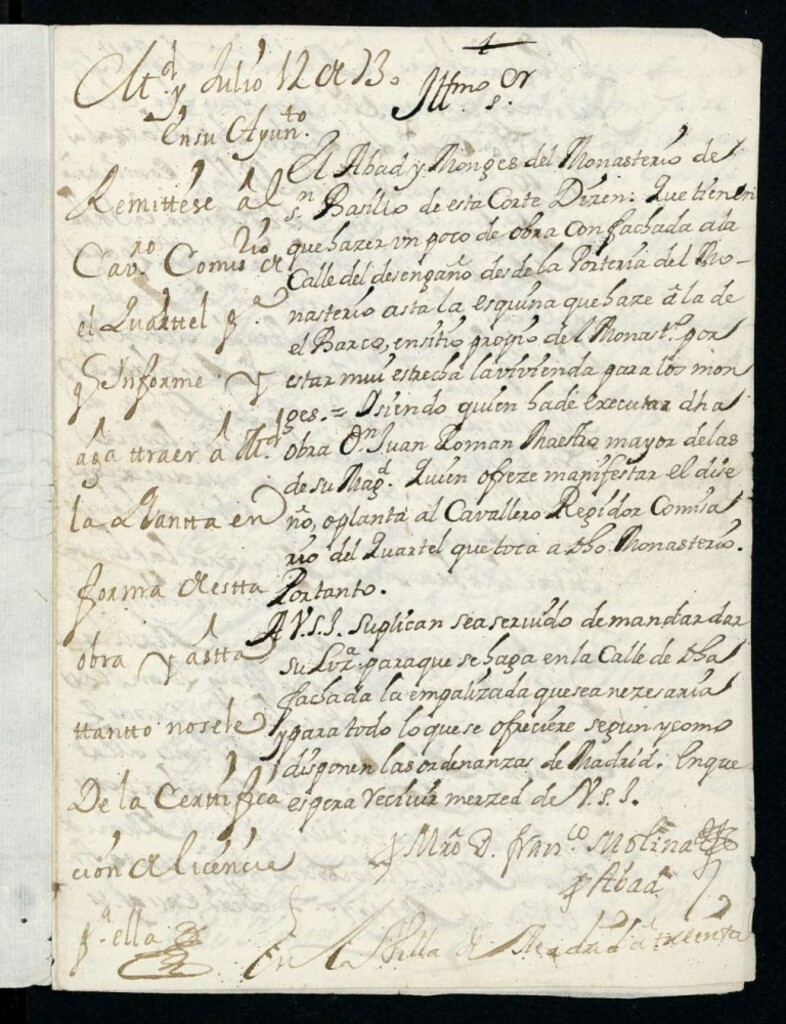 Md. y Julio 12 de 13.
En su Ayunto.
Remittese â el
Cavro. Comisrio de
el Quarttel pa.
q̃ Informe y
aga ttraer â Md.
la Plantta en
forma de estta
obra y astta
ttantto no se le
De la Certtifica
cion de licencia
pa. ella
Illmo. Sr.
El Abad y Monges del Monasterio de
Sn. Basilio de esta Corte Dizen: Que tienen
que hazer vn poco de obra con fachada a la
Calle del desengaño desde la Porteria del Mo-
nasterio asta la esquina que haze â la de
el Barco, en sitio propio del Monastº. por
estar mui estrecha la vivienda para los mon
ges. = I siendo quien ha de executar dha
obra Dn. Juan Roman Maestro mayor de las
de su Magd. Quien ofreze manifestar el dise
ño, o planta al Cavallero Regidor Comisa
rio del Quartel que toca a dho Monasterio.
Por tanto.
A V.S.I. suplican sea servido de mandar dar
su Lizª. para que se haga en la Calle de dha
fachada la empalizada que sea nezesaria
y para todo lo que se ofreciere segun y como
disponen las ordenanzas de Madrid. En que
espera recivir merzed de V.S.I.
Mro D. Franco Molina
Abad
En la Villa de Madrid a treinta